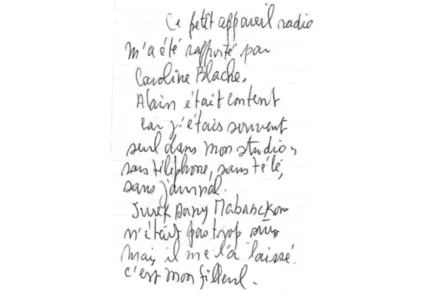 Ce petit appareil radio
m'a été rapporté par
Caroline Blache,
Alain était content
car j'étais souvent
seul dans mon studio,
sans téléphone, sans télé,
sans journal.
Jurek Dany Mabanckou
n'était pas trop sûr
mais il me l'a laissé.
c'est mon filleul.